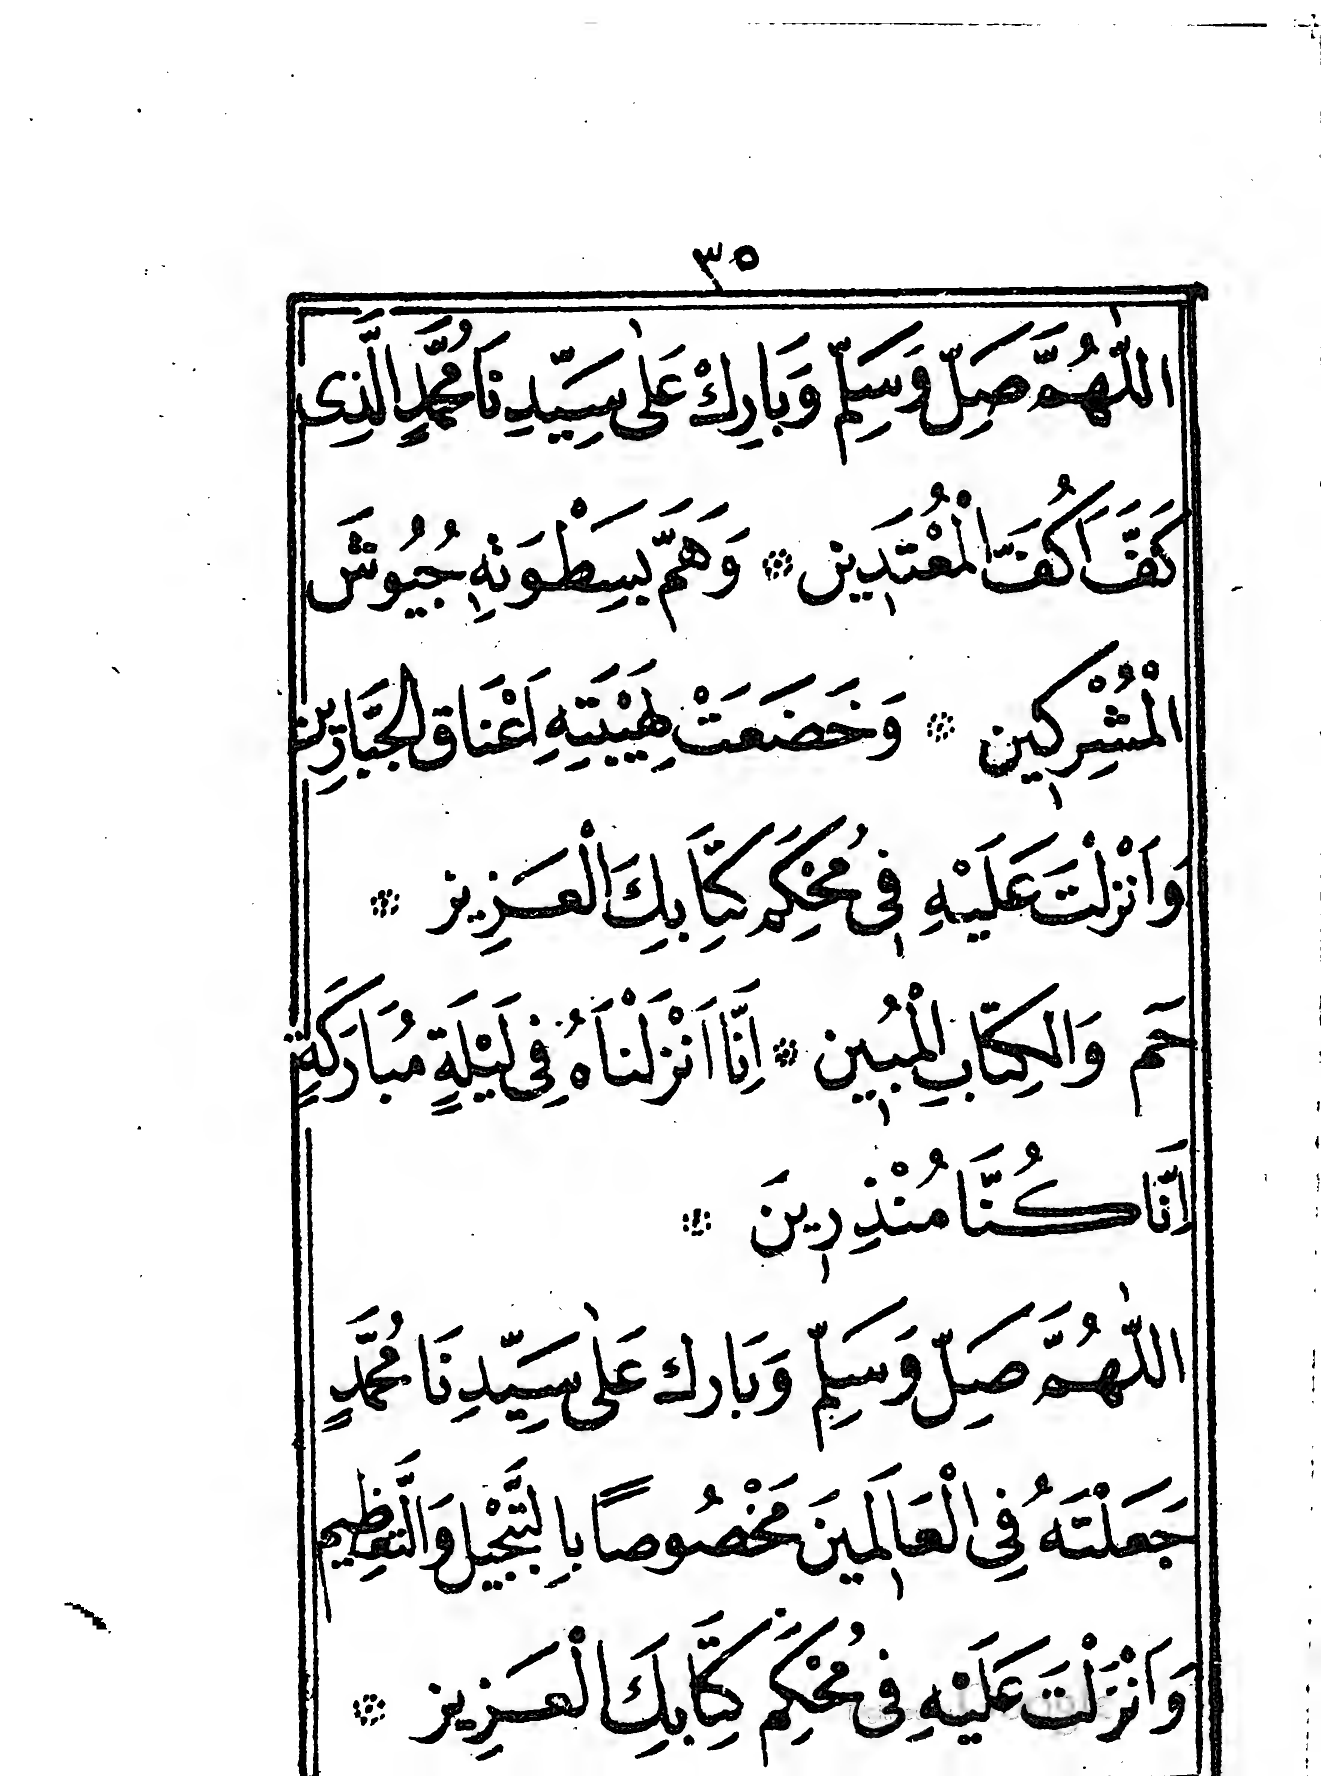 ٣٥
اللّٰهُمَّ صَلِّ وَسَلِّمْ وَبَارِكْ عَلٰى سَيِّدِنَا مُحَمَّدٍ الَّذِى
كَفَّ اَكُفَّ الْمُعْتَدِين * وَهَمَّ بِسَطْوَتِهِ جُيُوشَ
الْمُشْرِكِين * وَخَضَعَتْ لِهَيْبَتِهِ اَعْنَاق الْجَبَّارِين
وَاَنْزَلْتَ عَلَيْهِ فِى مُحْكَمِ كِتَابِكَ الْعَزِيز *
حَم وَالْكِتَابِ الْمُبِين * اِنَّا اَنْزَلْنَاهُ فِى لَيْلَةٍ مُبَارَكَةٍ
اِنَّا كُنَّا مُنْذِرِينَ *
اللّٰهُمَّ صَلِّ وَسَلِّمْ وَبَارِك عَلٰى سَيِّدِنَا مُحَمَّدٍ
جَعَلْتَهُ فِى الْعَالَمِينَ مَخْصُوصًا بِالتَّبْجِيل وَالتَّعْظِيم
وَاَنْزَلْتَ عَلَيْهِ فِى مُحْكَمِ كِتَابِكَ الْعَزِيز *